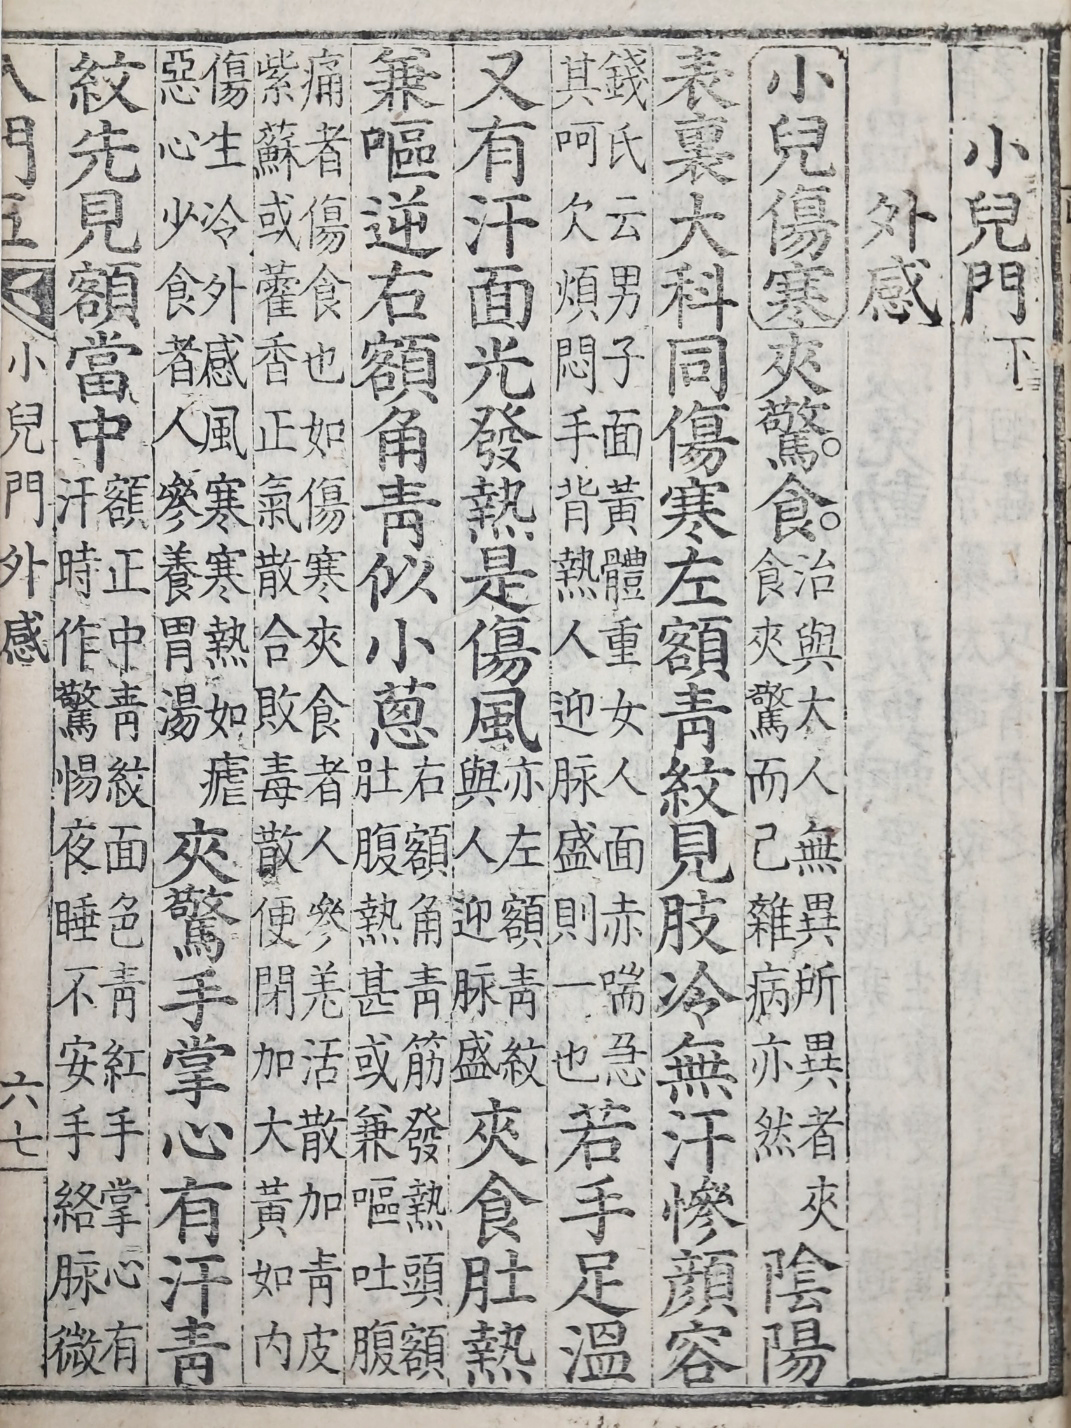 小兒門下
外感
小兒傷寒夾驚食治與大人無異所異者夾食夾驚而已雜病亦然陰陽
表裏大科同傷寒左額青紋見肢冷無汗慘顏容
錢氏云男子面黃體重女人面赤喘急其呵欠煩悶手背熱人迎脉盛則一也若手足溫
又有汗面光發熱是傷風亦左額青紋與人迎脉盛夾食肚熱
兼嘔逆右額角青似小蔥右額角青筋發熱頭額肚腹熱甚或兼嘔吐腹
痛者傷食也如傷寒夾食者人參羌活散加青皮紫蘇或藿香正氣散合敗毒散便閉加大黃如內
傷生冷外感風寒寒熱如瘧惡心少食者人參養胃湯夾驚手掌心有汗青
紋先見額當中額正中青紋面色青紅手掌心有汗時作驚惕夜睡不安手絡脉微
入門五 小兒門外感 六七